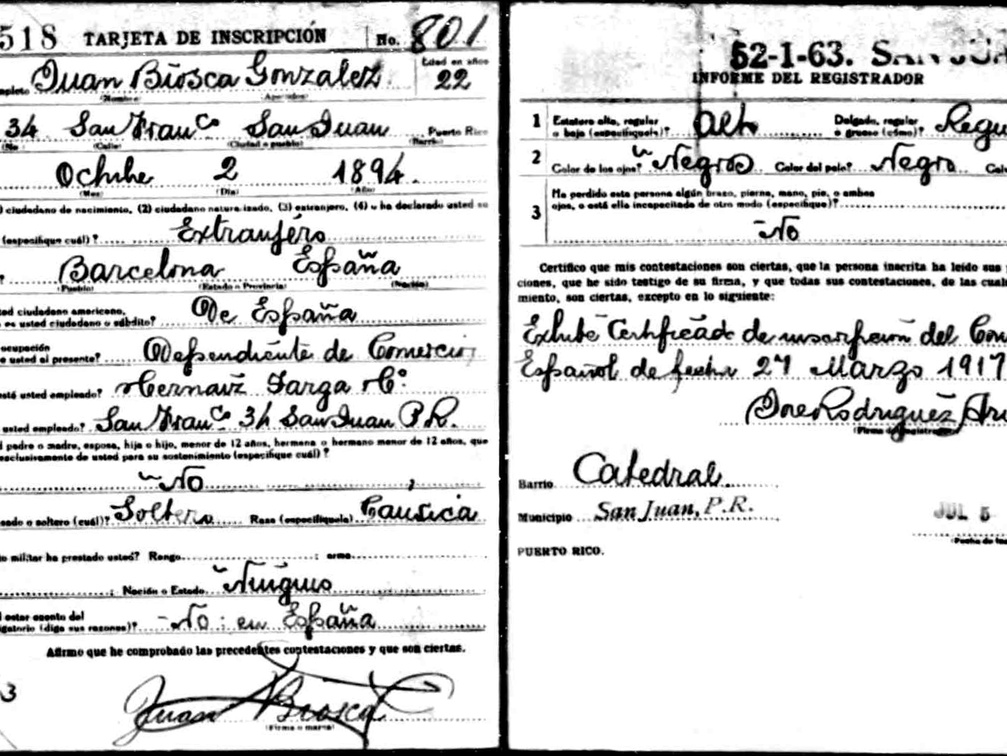 518 TARJETA DE INSCRIPCIÓN No. 801
Edad en años
Juan Biosca Gonzalez 22
(Nombre) (Apellidos)
34 San Franco San Juan Puerto Rico
(No (Calle) (Ciudad o pueblo) (Barrio)
Octubre 2 1894.
(Mes) (Día) (Año)
) ciudadano de nacimiento, (2) ciudadano naturalizado, (3) extranjero, (4) u ha declarado usted su
(especifique cuál)? Extranjero
Barcelona España
(Pueblo) (Estado o Provincia) (Nación)
ted ciudadano americano,
es usted ciudadano o súbdito? De España
ocupación
usted al presente? Dependiente de Comercio
está usted empleado? Hernaiz Targa Co.
usted empleado? San Franco 34 San Juan P.R.
padre o madre, esposa, hija o hijo, menor de 12 años, hermana o hermano menor de 12 años, que
exclusivamente de usted para su sostenimiento (especifique cuál)?
No
sado o soltero (cuál)? Soltero Raza (especifíquela) Caucica
o militar ha prestado usted? Rango ; arma
; Nación o Estado Ninguno
estar exento del
igatorio (diga sus razones)? No: en España
Afirmo que he comprobado las precedentes contestaciones y que son ciertas.
3
Juan Biosca
(Firma o marca)
52-I-63. SAN JUA
INFORME DEL REGISTRADOR
1 Estatura alta, regular o baja (especifíquela)? Alto Delgado, regular o grueso (cómo)? Regu
2 Color de los ojos? Negros Color del pelo? Negro Calv
3 Ha perdido esta persona algún brazo, pierna, mano, pie, o ambos
ojos, o está ella incapacitada de otro modo (especifique)?
No
Certifico que mis contestaciones son ciertas, que la persona inscrita ha leído sus
ciones, que he sido testigo de su firma, y que todas sus contestaciones, de las cual
miento, son ciertas, excepto en lo siguiente:
Exhibe Certificado de inscripcion del Con
Español de fecha 27 Marzo 1917
Rodriguez
(Firma del registrador)
Barrio Catedral
Municipio San Juan, P.R. JUL 5
(Fecha de
PUERTO RICO.